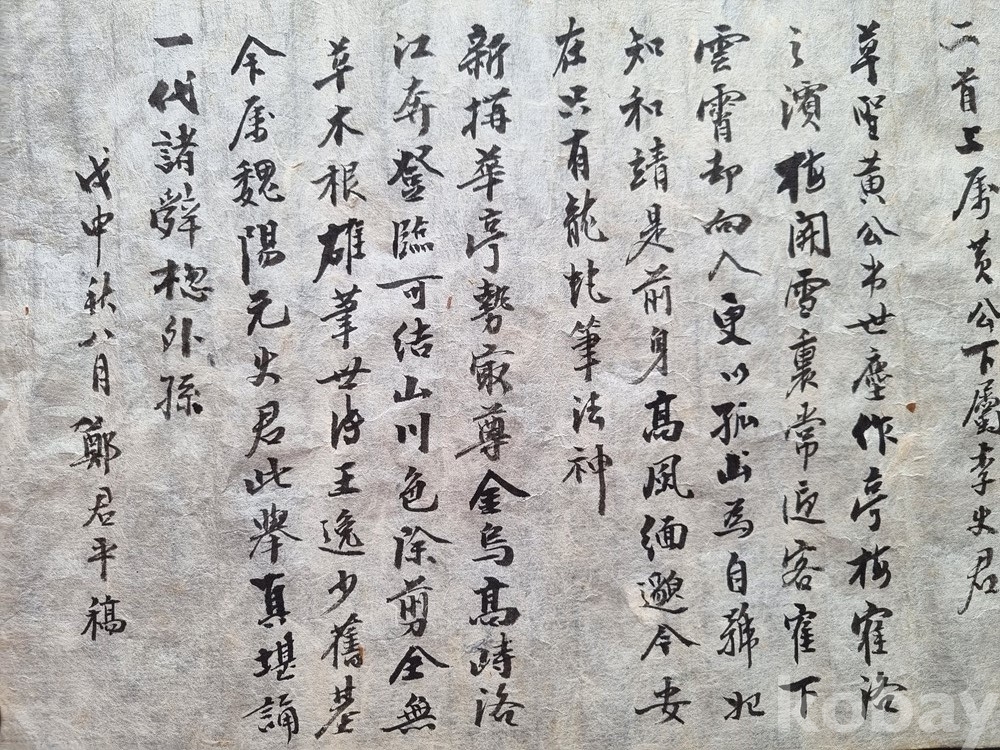 二首上属黄公下屬李史君
草聖黄公出世塵作亭梅寉洛
之濱梅開雪裏常近客寉下
雲霄却向人更以孤山為自號始
知和靖是前身高風緬邈今安
在只有龍蛇筆法神
新構華亭勢最尊金烏高峙洛
江奔登臨可結山川色除剪全無
草木根雄筆世傳王逸少舊基
今属魏陽元史君此舉真堪誦
一代諸辤揔外孫
戊申秋八月鄭君平稿
kobay